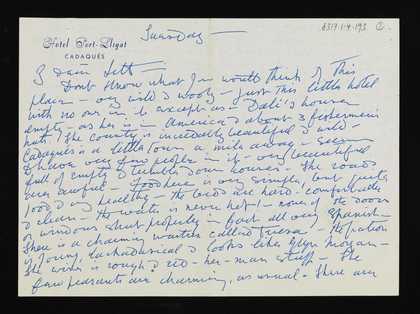 8317.1.4.193 ②
Hotel Port-Lligat
CADAQUÉS
Tuesday —
Dont know what you would think of this
place — very wild & wooly — just this little hotel
with no one in it except us — Dali's house
empty — as he is in America & about 3 fishermen's
huts! The country is incredibly beautiful & wild —
Cadaques is a little town a mile away —
& have very few people in it — very beautiful
full of empty & tumble down houses — The roads
are awful — Food here is very simple, but quite
good & very healthy — The beds are hard — comfortable
& clean — The water is never hot! — none of the doors
or windows shut properly — in fact all very Spanish —
There is a charming waitress called Teresa — The patron
is young, lackadaisical & looks like Bryn Morgan —
The wines is rough & red — he-man stuff — The
few peasants are charming, as usual. There are